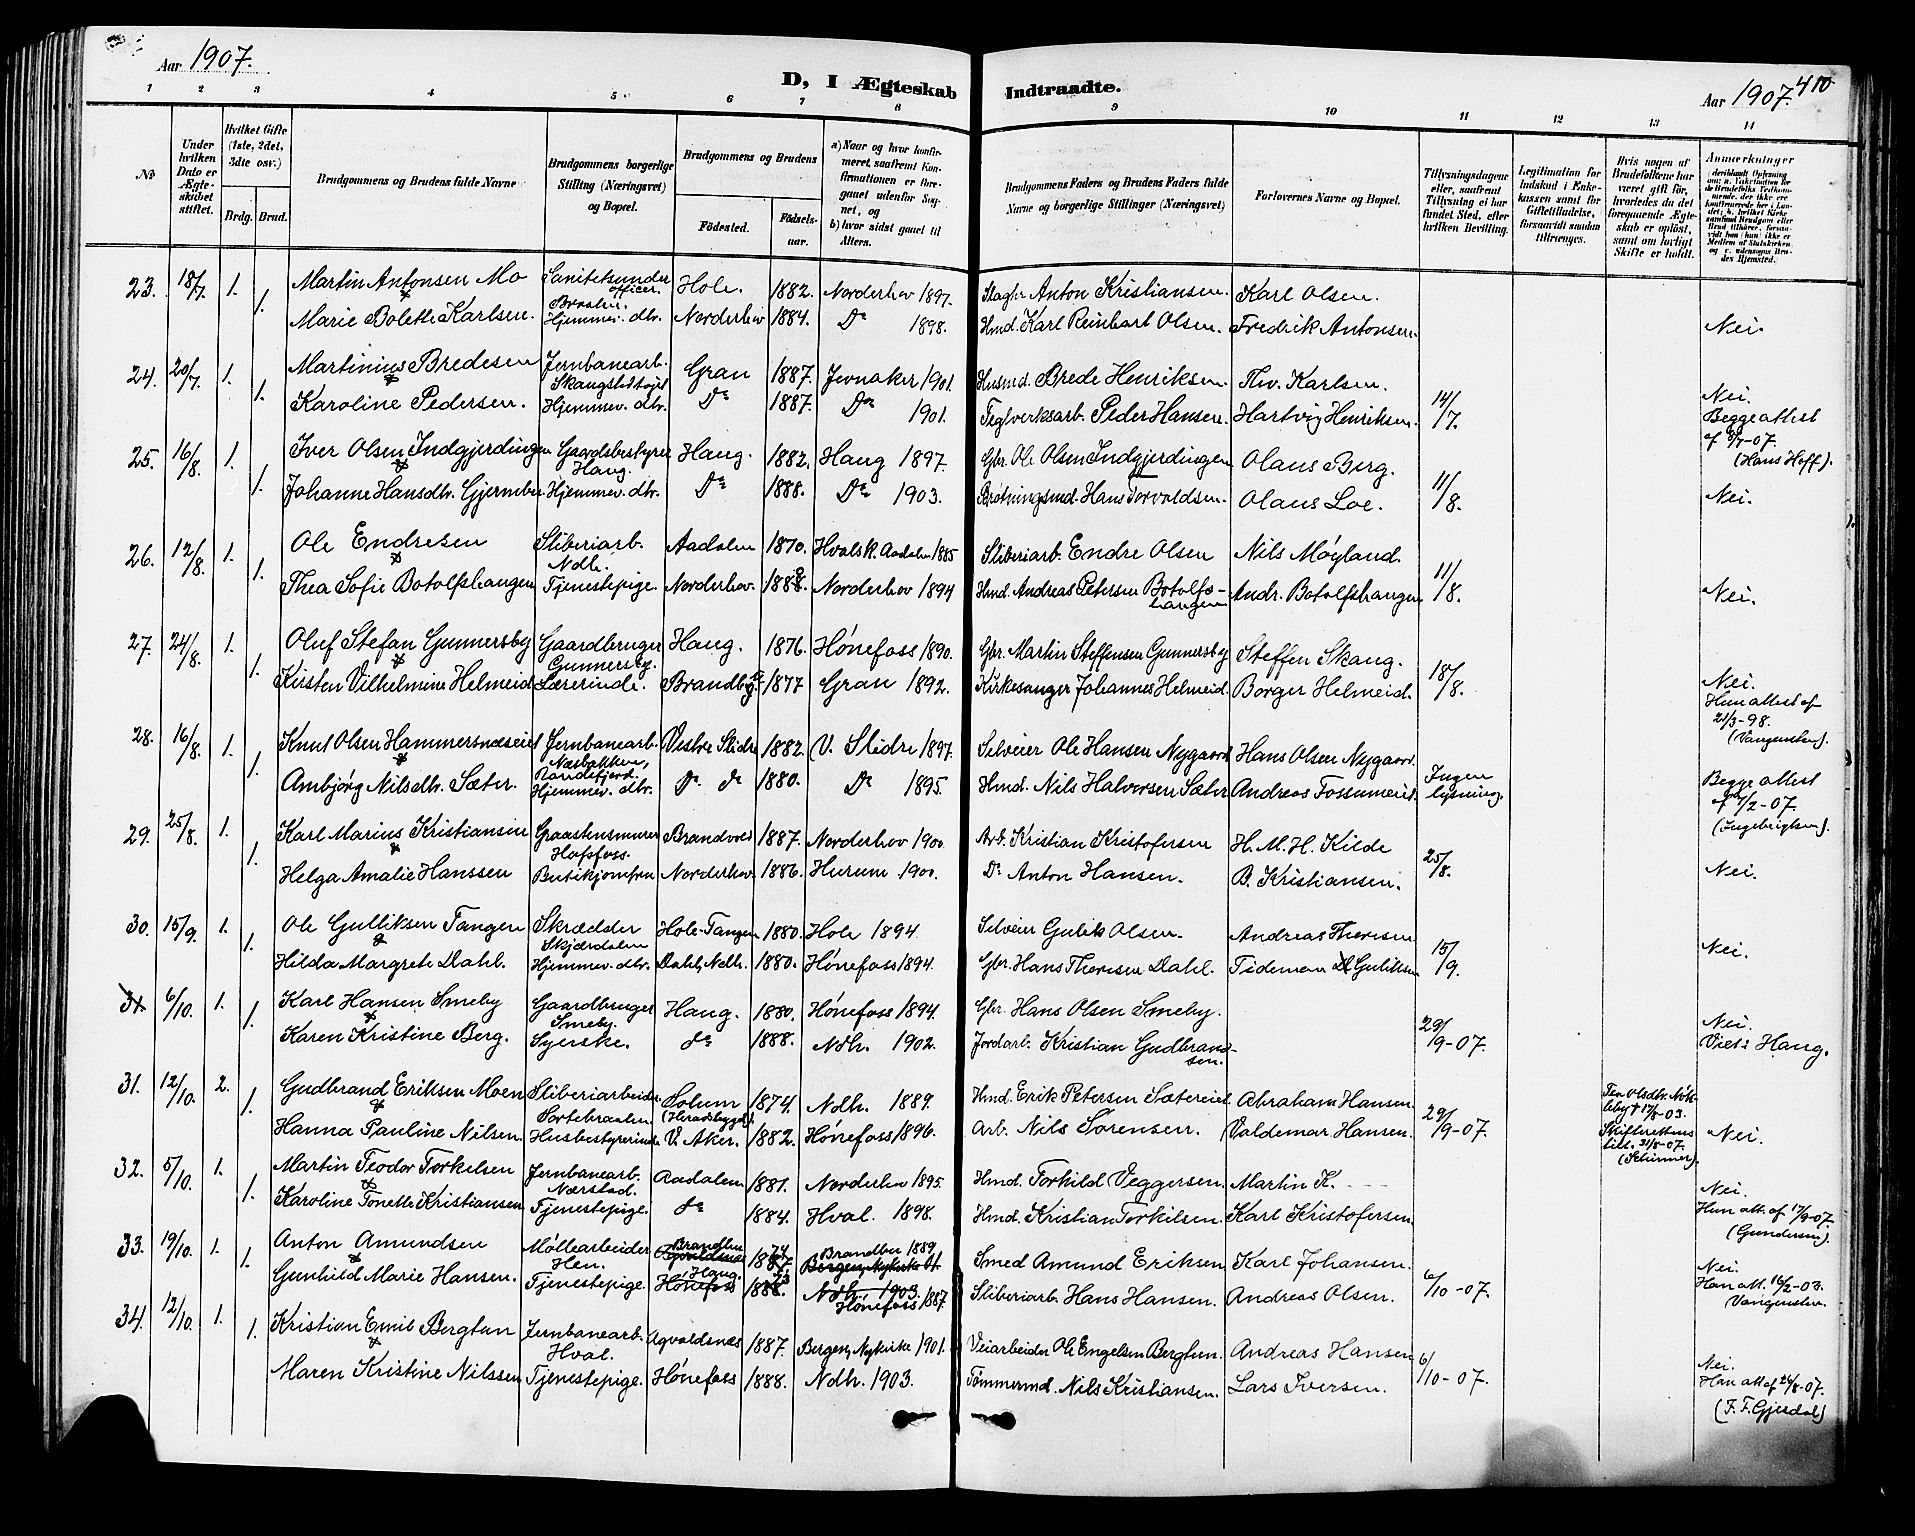 Aar 1907.
D, I Ægteskab Indtraadte.
Aar 1907. 410
1 2 3 4 5 6 7 8 9 10 11 12 13 14
No
Under hvilken Dato er Ægteskabet stiftet.
Hvilket Gifte (1ste, 2det, 3die osv.)
Brdg. Brud.
Brudgommens og Brudens fulde Navne
Brudgommens borgerlige Stilling (Næringsvei) og Bopæl.
Brudgommens og Brudens
Födested. Födsels-aar.
a) Naar og hvor konfirmeret, saafremt Konfirmationen er foregaaet udenfor Sognet, og b) hvor sidst gaaet til Alters.
Brudgommens Faders og Brudens Faders fulde Navne og borgerlige Stillinger (Næringsvei)
Forlovernes Navne og Bopæl.
Tillysningsdagene eller, saafremt Tillysning ei har fundet Sted, efter hvilken Bevilling.
Legitimation for Indskud i Enkekassen samt for Giftetilladelse, forsaavidt saadan tiltrænges.
Hvis nogen af Brudefolkene har været gift før, hvorledes da det foregaaende Ægteskab er oplöst, samt om lovligt Skifte er holdt.
Anmerkninger
23. 18/7. 1. Martin Antonsen Mo Sanitetsunderofficer. Hole. 1882. Norderhov 1897. Anton Kristiansen. Karl Olsen.
1. Marie Bolette Karlsen. Hjemmev. dtr. Norderhov 1884. Do 1898. Hmd. Karl Reinhart Olsen. Fredrik Antonsen. Nei.
24. 20/7. 1. Martinius Bredesen Jernbanearb. Gran 1887. Jevnaker 1901. Husmd. Brede Henriksen. Thv. Karlsen.
1. Karoline Pedersen. Hjemmev. dtr. Do 1887. Do 1901. Teglverksarb. Peder Hansen. Hartvig Henriksen. 14/7. Nei. Begge attest af 8/7-07. (Hans Hoff).
25. 16/8. 1. Iver Olsen Indgjerdingen Gaardsbestyrer Haug. Haug. 1882. Haug 1897. Gbr. Ole Olsen Indgjerdingen Olaus Berg.
1. Johanne Hansdtr. Hjemmev. dtr. Do 1888. Do 1903. Hans Torvaldsen. Olaus Loe. 11/8. Nei.
26. 12/8. 1. Ole Endresen Sliberiarb. Ndh. Aadalen 1870. Hvals K. Aadalen 1885 Sliberiarb. Endre Olsen Nils Møyland.
1. Thea Sofie Botolfshaugen Tjenestepige. Norderhov. Norderhov 1894 Hmd. Andreas Petersen Botolfshaugen Andr. Botolfshaugen 11/8. Nei.
27. 24/8. 1. Oluf Stefan Gunnersby Gaardbruger Gunnersby. Haug. 1876. Hønefoss 1890. Gbr. Martin Steffensen Gunnersby Steffen Skaug.
1. Kirsten Vilhelmine Helmeid Lærerinde. Brandbu 1877 Gran 1892. Kirkesanger Johannes Helmeid. Borger Helmeid. 18/8. Nei. Hun attest af 21/3-98. (Vangensten).
28. 16/8. 1. Knut Olsen Hammersnæseiet Jernbanearb. Næsbakken, Randsfjord. Vestre Slidre 1882. V. Slidre 1897. Selveier Ole Hansen Nygaard Hans Olsen Nygaard.
1. Ambjørg Nilsdtr. Sæter. Hjemmev. dtr. Do do 1880. Do 1895. Hmd. Nils Halvorsen Sæter Andreas Fossumeiet. Ingen lysning. Begge attest (Ingebrigtsen).
29. 25/8. 1. Karl Marius Kristiansen Graastensmurer Hofsfoss. Brandvold 1887. Norderhov 1900. Arb. Kristian Kristofersen H. M. H. Kilde
1. Helga Amalie Hanssen Butikjomfru Norderhov 1886. Hurum 1900. Do Anton Hansen. B. Kristiansen. 25/8. Nei.
30. 15/9. 1. Ole Gulliksen Tangen Skrædder Skjærdalen Hole-Tangen 1880. Hole 1894. Selveier Gulik Olsen. Andreas Thoresen
1. Hilda Margrete Dahl. Hjemmev. dtr. Dahl, Ndh. 1880. Hønefoss 1894. Gbr. Hans Thoresen Dahl. Tideman Guliksen 15/9. Nei.
31. 6/10. 1. Karl Hansen Smeby Gaardbruger Smeby. Haug. 1880. Hønefoss 1894. Gbr. Hans Olsen Smeby.
1. Karen Kristine Berg. Syerske. do 1888. Ndh. 1902. Jordarb. Kristian Gudbrandsen. 29/9-07. Nei. Viet i Haug.
31. 12/10. 2. Gudbrand Eriksen Moen Sliberiarbeider Sortebraaten Solum (Heradsbygd) 1874. Ndh. 1889. Hmd. Erik Petersen Sætereiet Abraham Hansen.
1. Hanna Pauline Nilsen. Husbestyrerinde V. Aker. 1882. Hønefoss 1896. Arb. Nils Sørensen. Valdemar Hansen. 29/9-07. † 17/8-03. Skifterettens att. 31/8-07. (Schirmer). Nei.
32. 5/10. 1. Martin Teodor Torkelsen Jernbanearb. Nærstad. Aadalen 1881. Norderhov 1895. Hmd. Torkild Veggersen. Martin K.
1. Karoline Tonette Kristiansen Tjenestepige. do 1884. Hval. 1898. Hmd. Kristian Torkilsen. Karl Kristofersen. Nei. Hun att. af 17/9-07. (Gundersen).
33. 19/10. 1. Anton Amundsen Møllearbeider Hen. Brandbu Brandbu 1889. Bergen, Nykirke Smed Amund Eriksen Karl Johansen.
1. Gunhild Marie Hansen. Tjenestepige. Haug. Hønefoss Ndh. 1903. Hønefoss 1887. Sliberiarb. Hans Hansen. Andreas Olsen. 6/10-07. Nei. Han att. 16/2-03. Vangensten.
34. 12/10. 1. Kristian Emil Bergtun Jernbanearb. Hval. Agvaldsnæs 1887. Bergen, Nykirke 1901. Veiarbeider Ole Engelsen Bergtun. Andreas Hansen
1. Maren Kristine Nilssen Tjenestepige. Hønefoss 1888. Ndh. 1903. Tømmermd. Nils Kristiansen. Lars Iversen. 6/10-07. Nei. Han att. af 24/8-07. (F. F. Gjesdal)